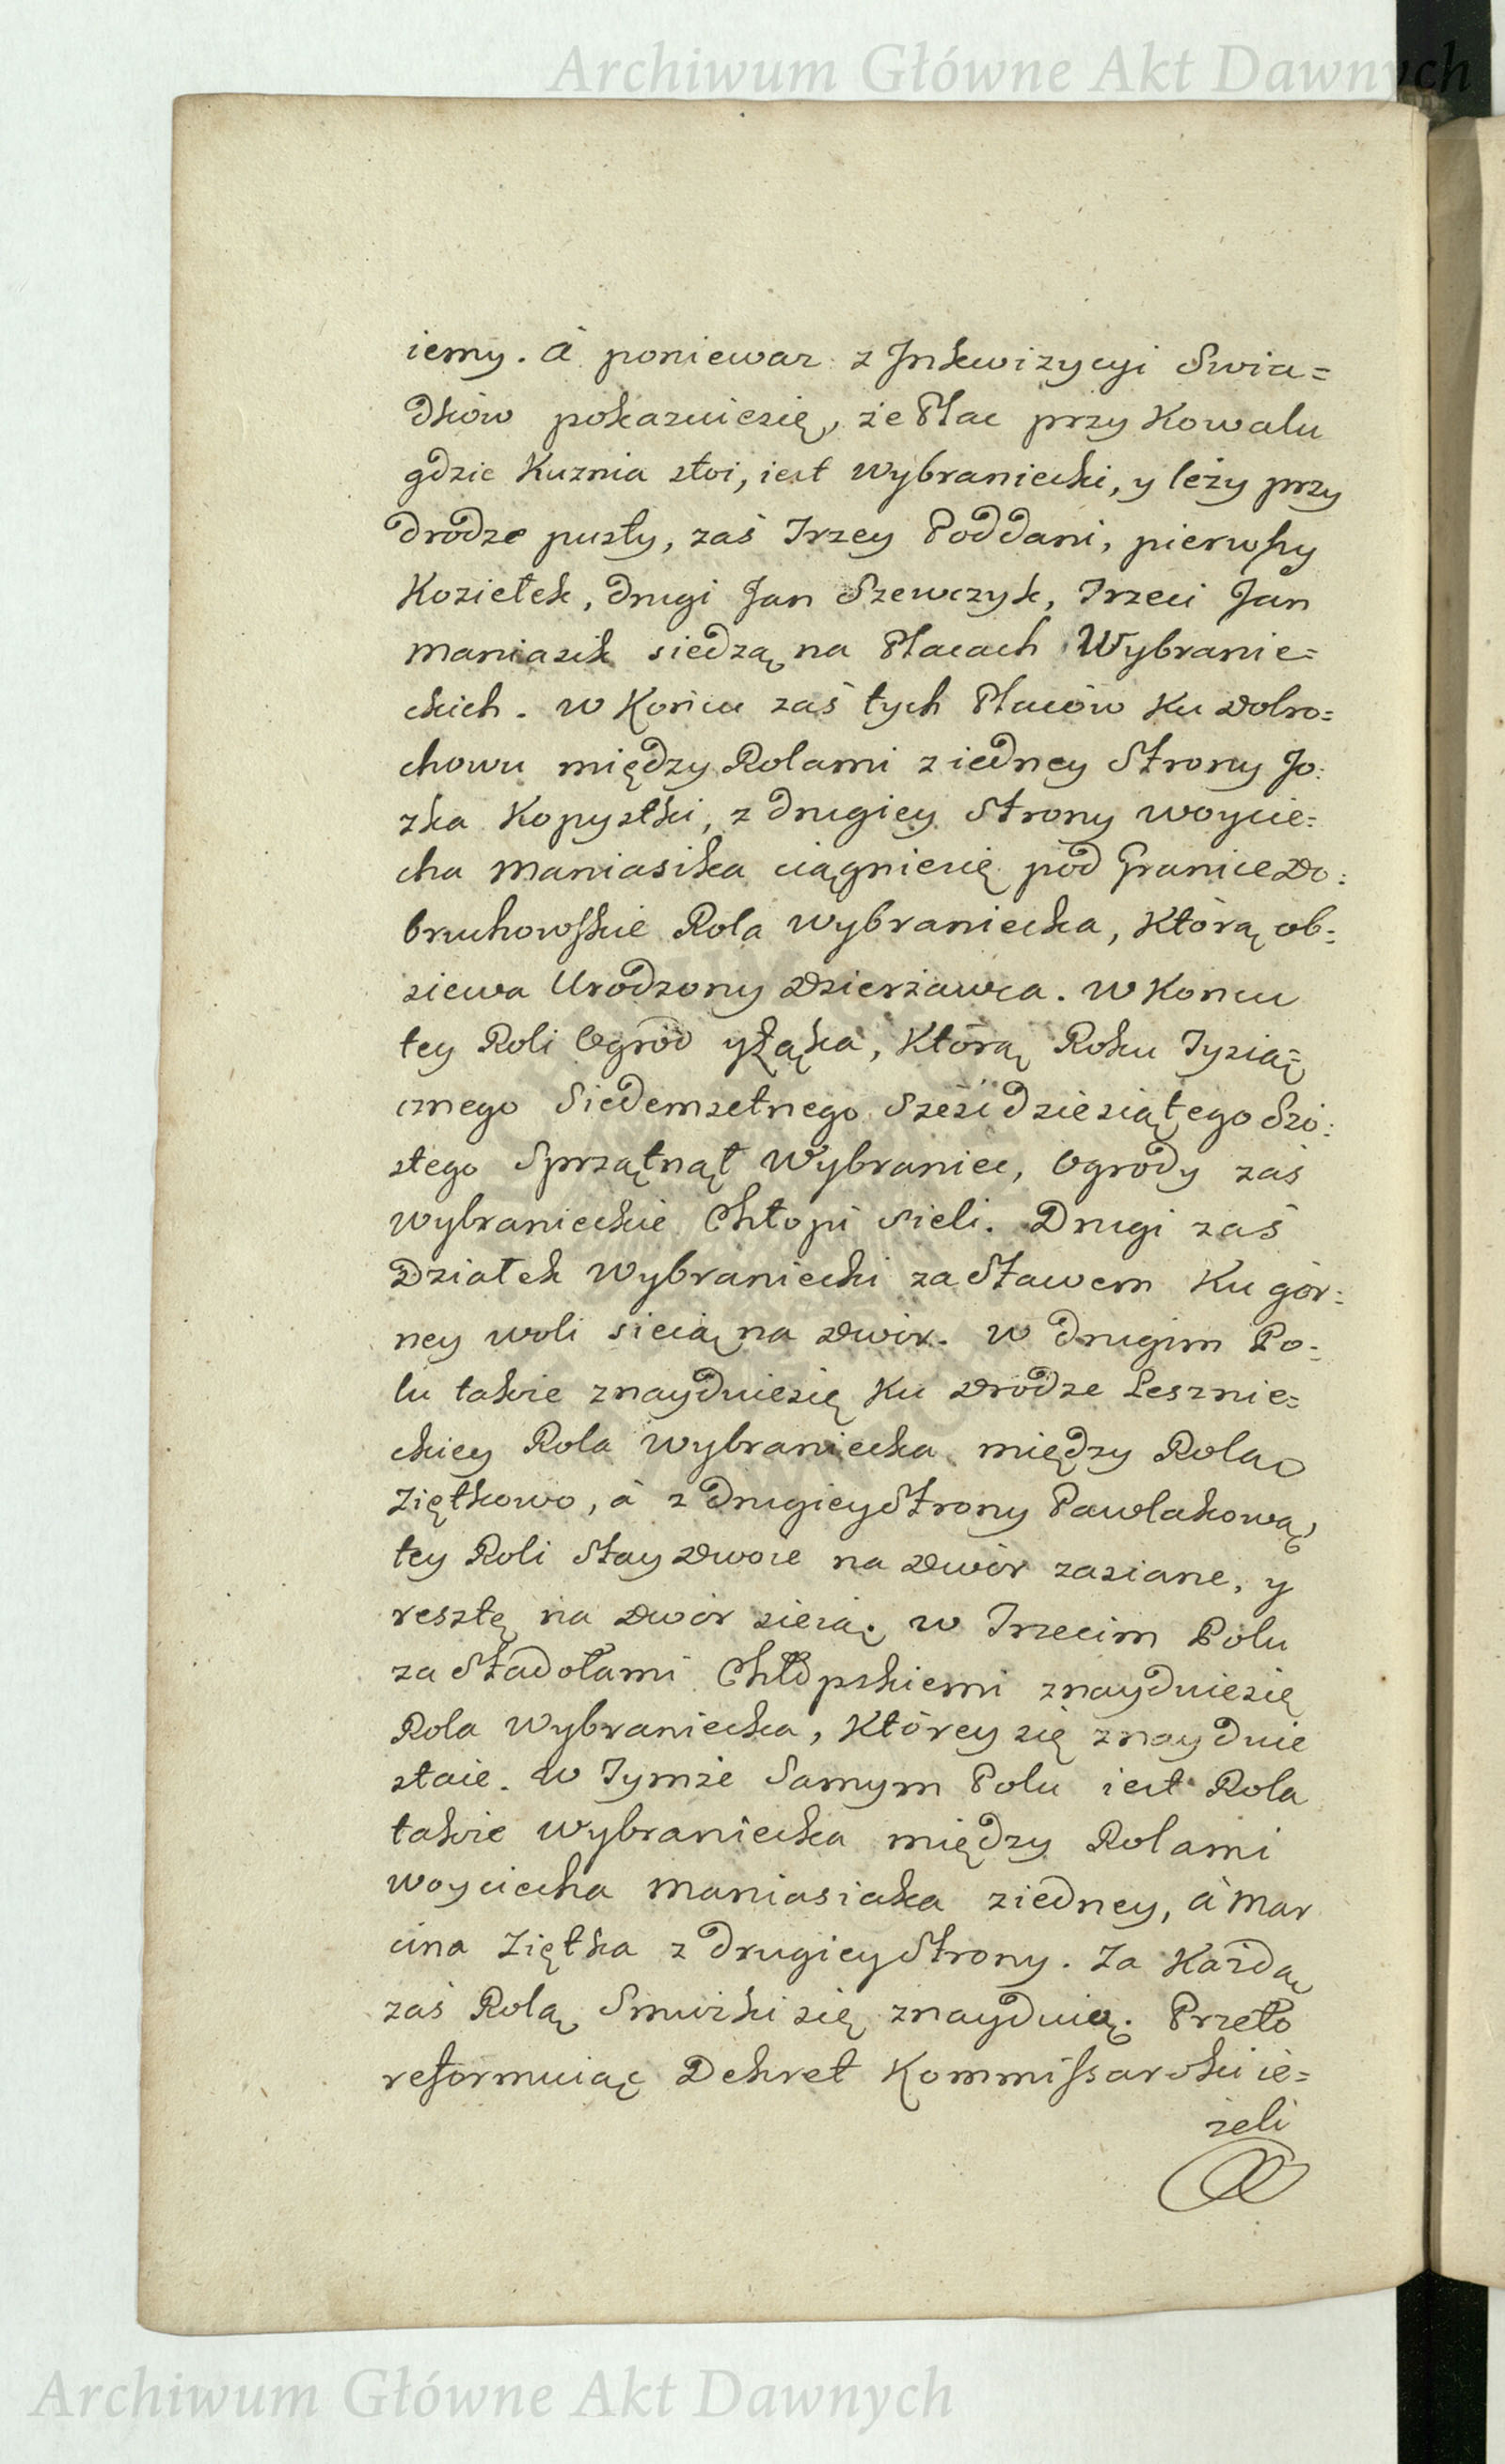 Archiwum Główne Akt Dawnych
iemy. á poniewaz z Jnkwizycyi Swia=
dków pokazuiesię, że Plac przy Kowalu
gdzie Kuznia stoi, iest Wybraniecki, y leży przy
drodze pusty, zaś Trzey Poddani, pierwszy
Koziełek, drugi Jan Szewczyk, Trzeci Jan
Maniasik siedzą na Placach Wybranie=
ckich. w Końcu zaś tych Placów Ku Dobro=
chowu między Rolami z iedney Strony Jo:
zka Kopystki, z drugiey Strony Woycie=
cha Maniasika ciągniesię pod Granice Do:
bruchowskie Rola Wybraniecka, Którą ob=
siewa Urodzony Dzierżawca. w Koncu
tey Roli Ogród y Łąka, Którą Roku Tysią=
cznego Siedemsetnego Sześćdziesiątego Szó:
stego Sprzątnął Wybraniec, Ogrody zaś
Wybranieckie Chłopi sieli. Drugi zaś
Działek Wybraniecki za Stawem Ku gór:
ney woli sieią na Dwór. w drugim Po=
lu także znayduiesię Ku Drodze Leśznie=
ckiey Rola Wybraniecka między Rolao
Ziętkowo, á z drugiey Strony Pawlakową,
tey Roli Stay Dwoie na Dwór zasiane, y
resztę na Dwór sieią. w Trzecim Polu
za Stadołami Chłopskiemi znayduiesię
Rola Wybraniecka, Którey się znayduie
staie. w Tymże Samym Polu iest Rola
także Wybraniecka między Rolami
Woyciecha Maniasiaka ziedney, á Mar
cina Ziętka z drugiey Strony. Za Każdą
zaś Rolą Smużki się znayduią. Przeto
reformuiąc Dekret Kommissarski ie=
żeli
Archiwum Główne Akt Dawnych